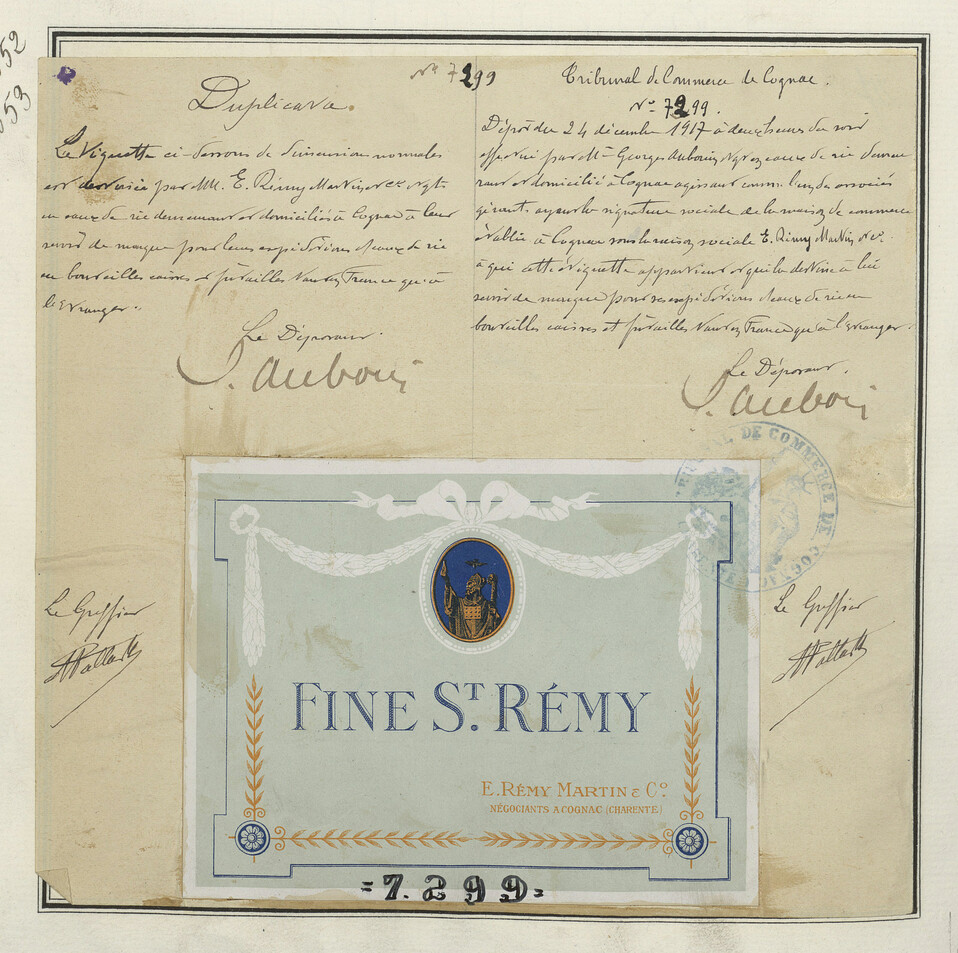 552
553
No 7299
Duplicata.
La vignette ci-dessous de dimension normales
est destinée par MM. E. Rémy Martin & Cie Ngts
en eaux de vie demeurant et domiciliés à Cognac à leur
servir de marque pour leurs expéditions d'eaux de vie
en bouteilles caisses et futailles tant en France qu'à
l'Etranger.
Le Déposant
G. Auboin
Tribunal de Commerce de Cognac.
No 7299.
Dépôt du 24 décembre 1917 à deux heures du soir
effectué par Mr Georges Auboin Ngt en eaux de vie demeu
rant et domicilié à Cognac agissant comme l'un des associés
gérants ayant la signature sociale de la maison de commerce
établie à Cognac sous la raison sociale E. Rémy Martin & Cie
à qui cette vignette appartient et qui la destine à lui
servir de marque pour ses expéditions d'eaux de vie en
bouteilles caisses et futailles tant en France qu'à l'Etranger.
Le Déposant.
G. Auboin
TRIBUNAL DE COMMERCE DE COGNAC
Le Greffier
Le Greffier
FINE ST. RÉMY
E. RÉMY MARTIN & CO.
NÉGOCIANTS A COGNAC (CHARENTE)
=7.299=